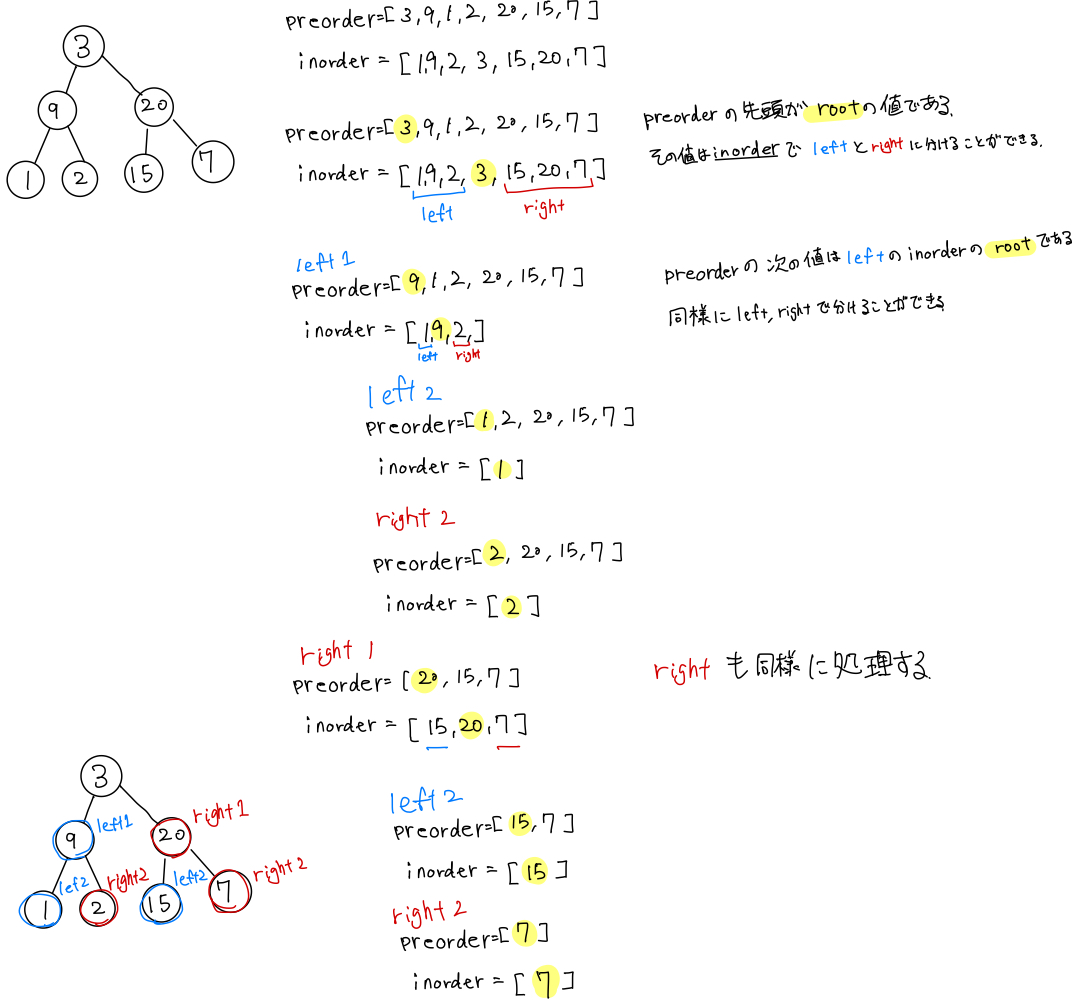 3
9
20
1
2
15
7
preorder=[3,9,1,2, 20,15,7]
inorder = [1,9,2, 3, 15,20,7]
preorder=[3,9,1,2, 20,15,7]
inorder = [1,9,2, 3, 15,20,7]
left
right
preorderの先頭がrootの値である.
その値はinorderで leftとrightに分けることができる.
left 1
preorder=[9,1,2, 20,15,7]
inorder = [1,9,2,]
left
right
preorderの 次の値はleftのinorderのrootである
同様にleft,rightで分けることができる
left 2
preorder=[1,2, 20,15,7]
inorder = [1]
right 2
preorder=[2, 20,15,7]
inorder = [2]
right 1
preorder= [20,15,7]
inorder = [15,20,7]
right も同様に処理する
left 2
preorder=[15,7]
inorder = [15]
right 2
preorder=[7]
inorder = [7]
3
9
left1
20
right1
1
lef2
2
right2
15
left2
7
right2